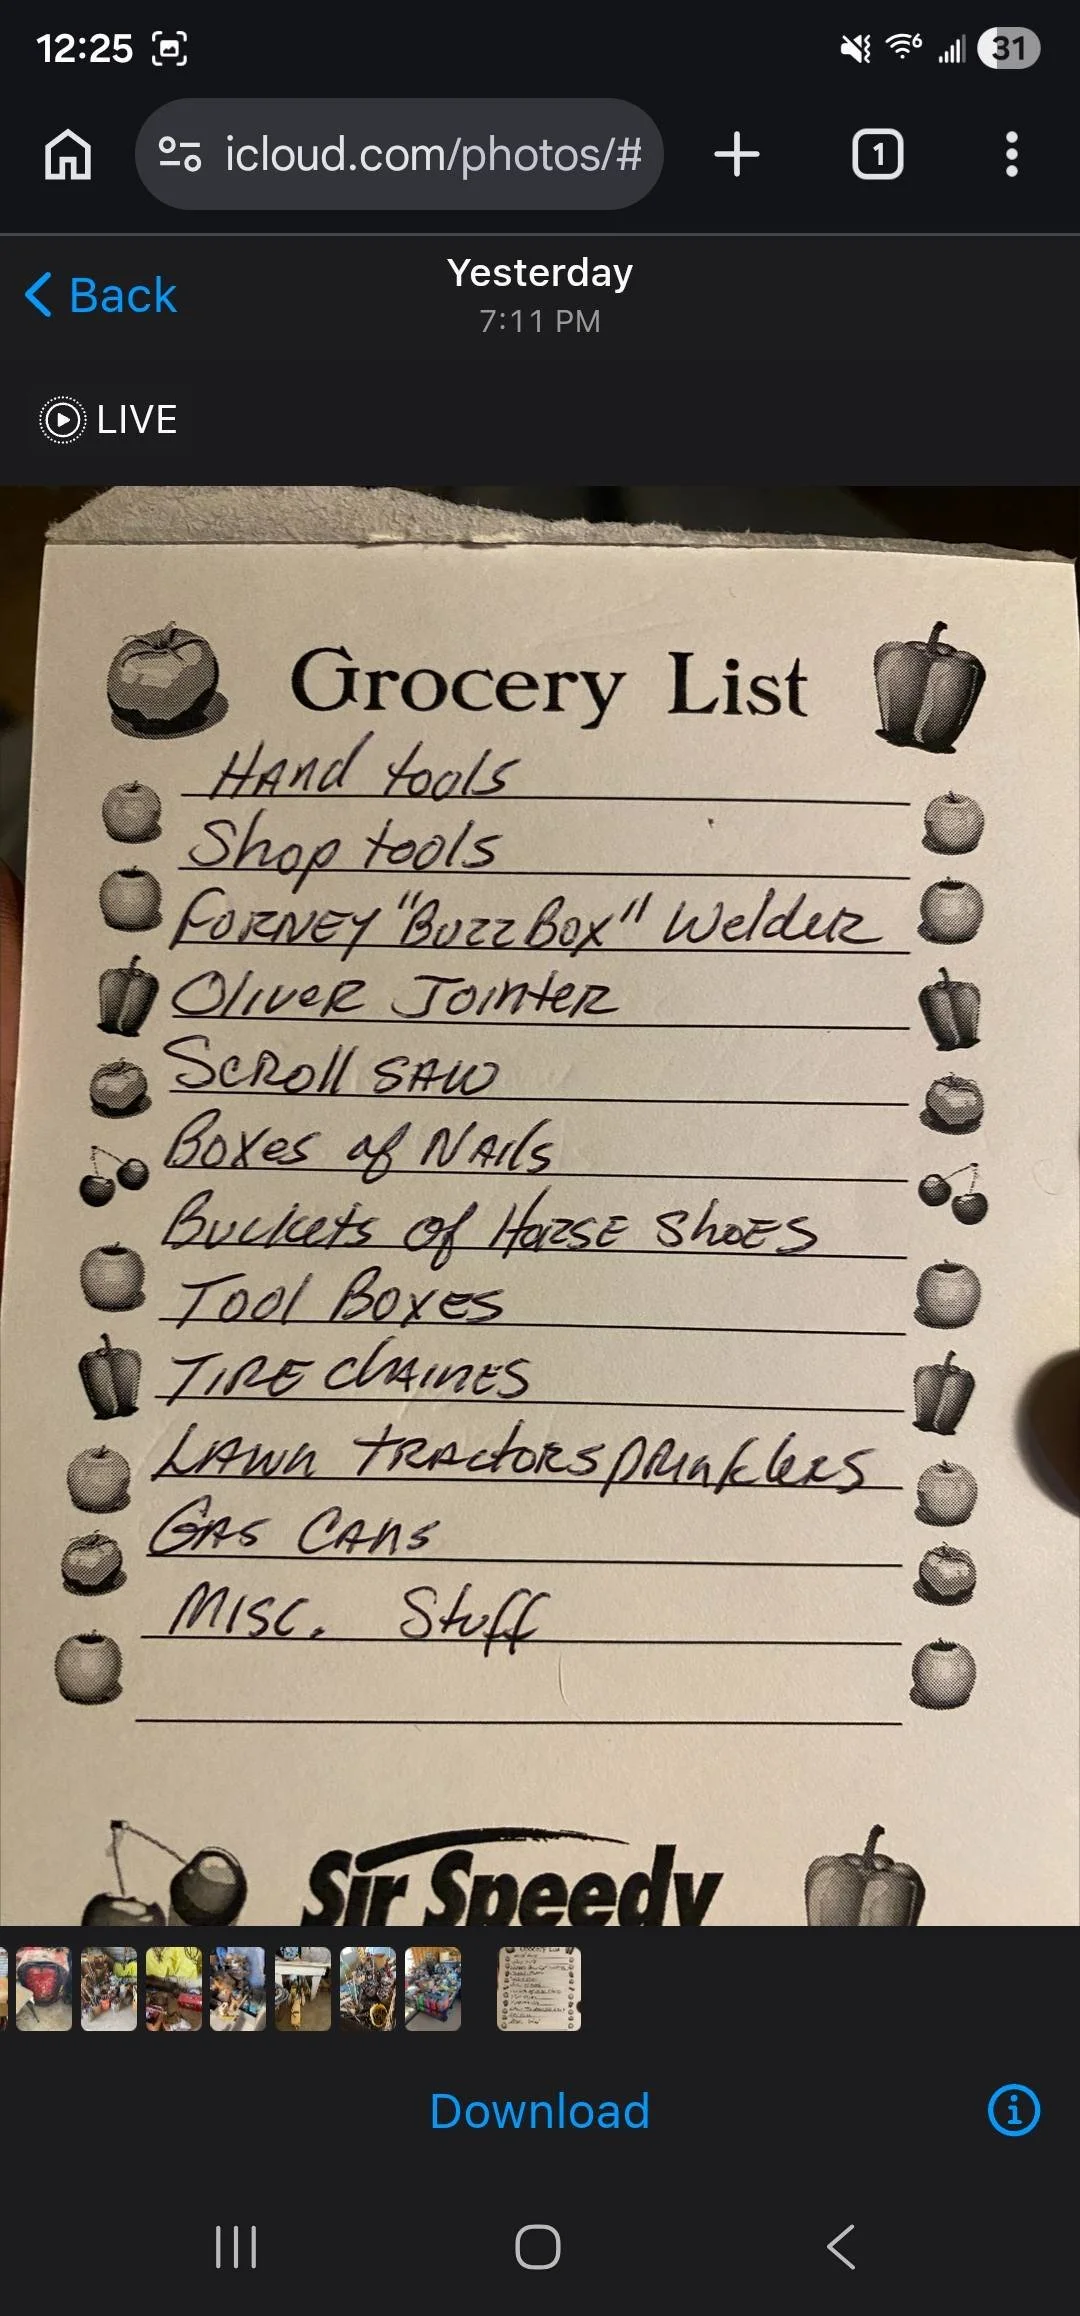 12:25
6
31
icloud.com/photos/#
1
Back
Yesterday
7:11 PM
LIVE
Grocery List
HAnd tools
Shop tools
FORNEY "Buzz Box" Welder
OliveR JointeR
ScRoll SAW
Boxes of NAils
Buckets of HoRSE ShoES
Tool Boxes
TIRE ChAINES
LAwn tRActoR spRinklers
GAS CAns
MISC. Stuff
Sir Speedy
Download